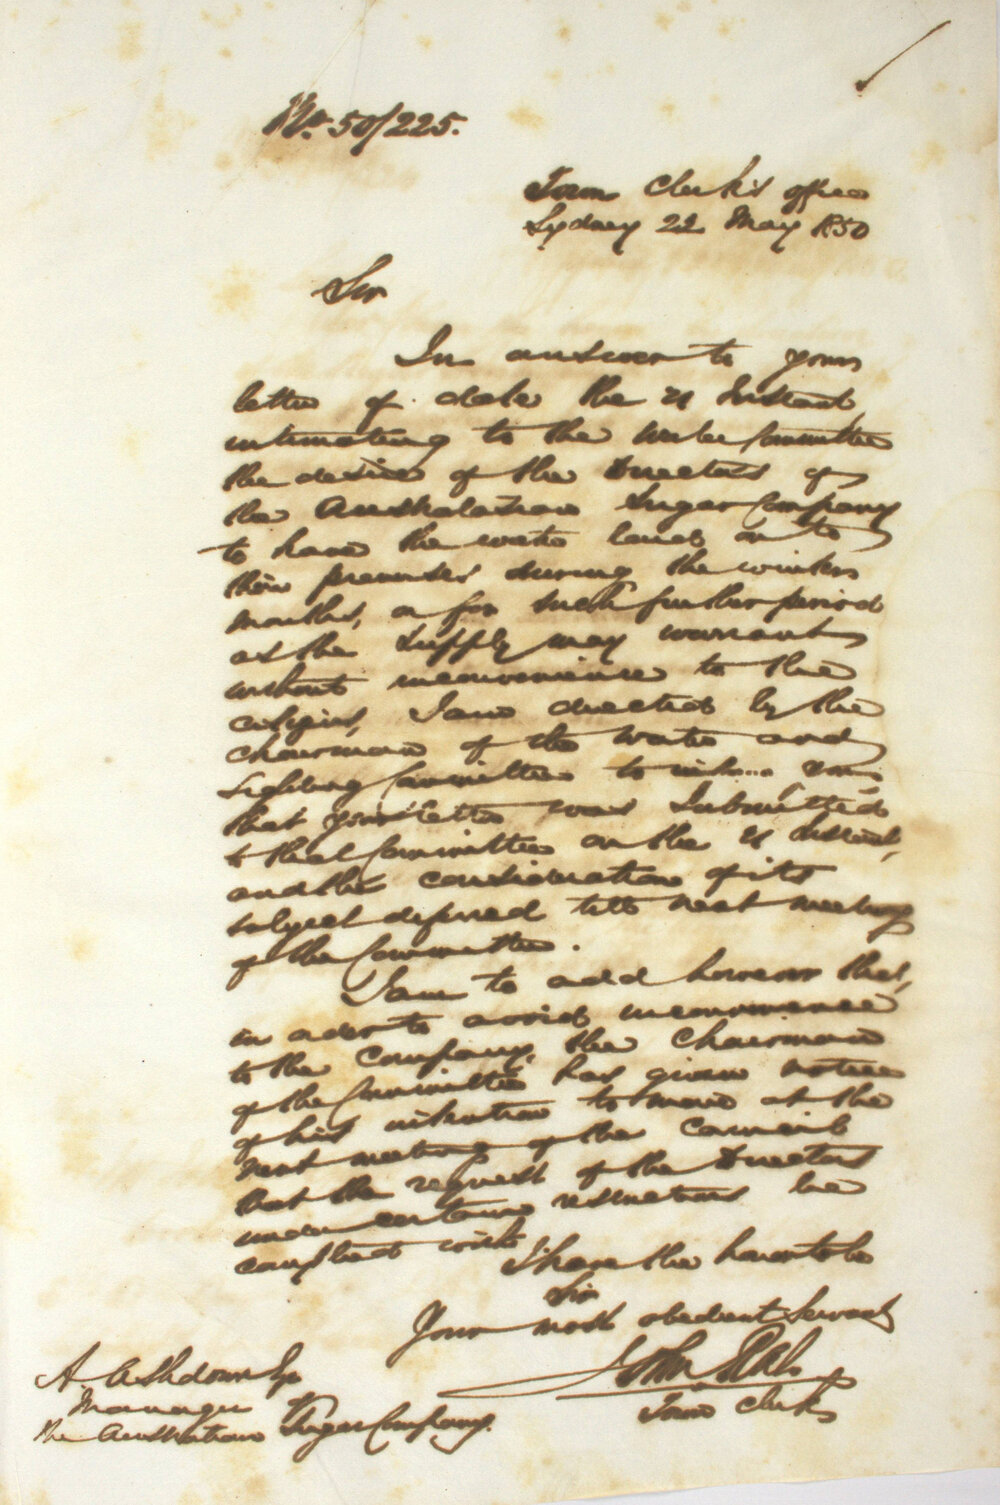 No. 50/225.
Town Clerk's office
Sydney 22 May 1850
Sir
In answer to your
letter of date the 21 Instant,
intimating to the Water Committee
the desire of the Directors of
the Australasian Sugar Company
to have the water laid on to
their premises during the winter
months, or for such further period
as the supply may warrant
without inconvenience to the
citizens, I am directed by the
Chairman of the Water and
Lighting Committee to inform you
that your letter was submitted
to that Committee on the 21 Instant,
and the consideration of its
subject deferred till next meeting
of the Committee.
I am to add however that,
in order to avoid inconvenience
to the Company, the Chairman
of the Committee has given notice
of his intention to move at the
next meeting of the Council
that the request of the Directors
under certain restrictions be
complied with
I have the honor to be
Sir
Your most obedient Servant
John
Town Clerk
A. Ashdown Esq
Manager of
the Australasian Sugar Company.